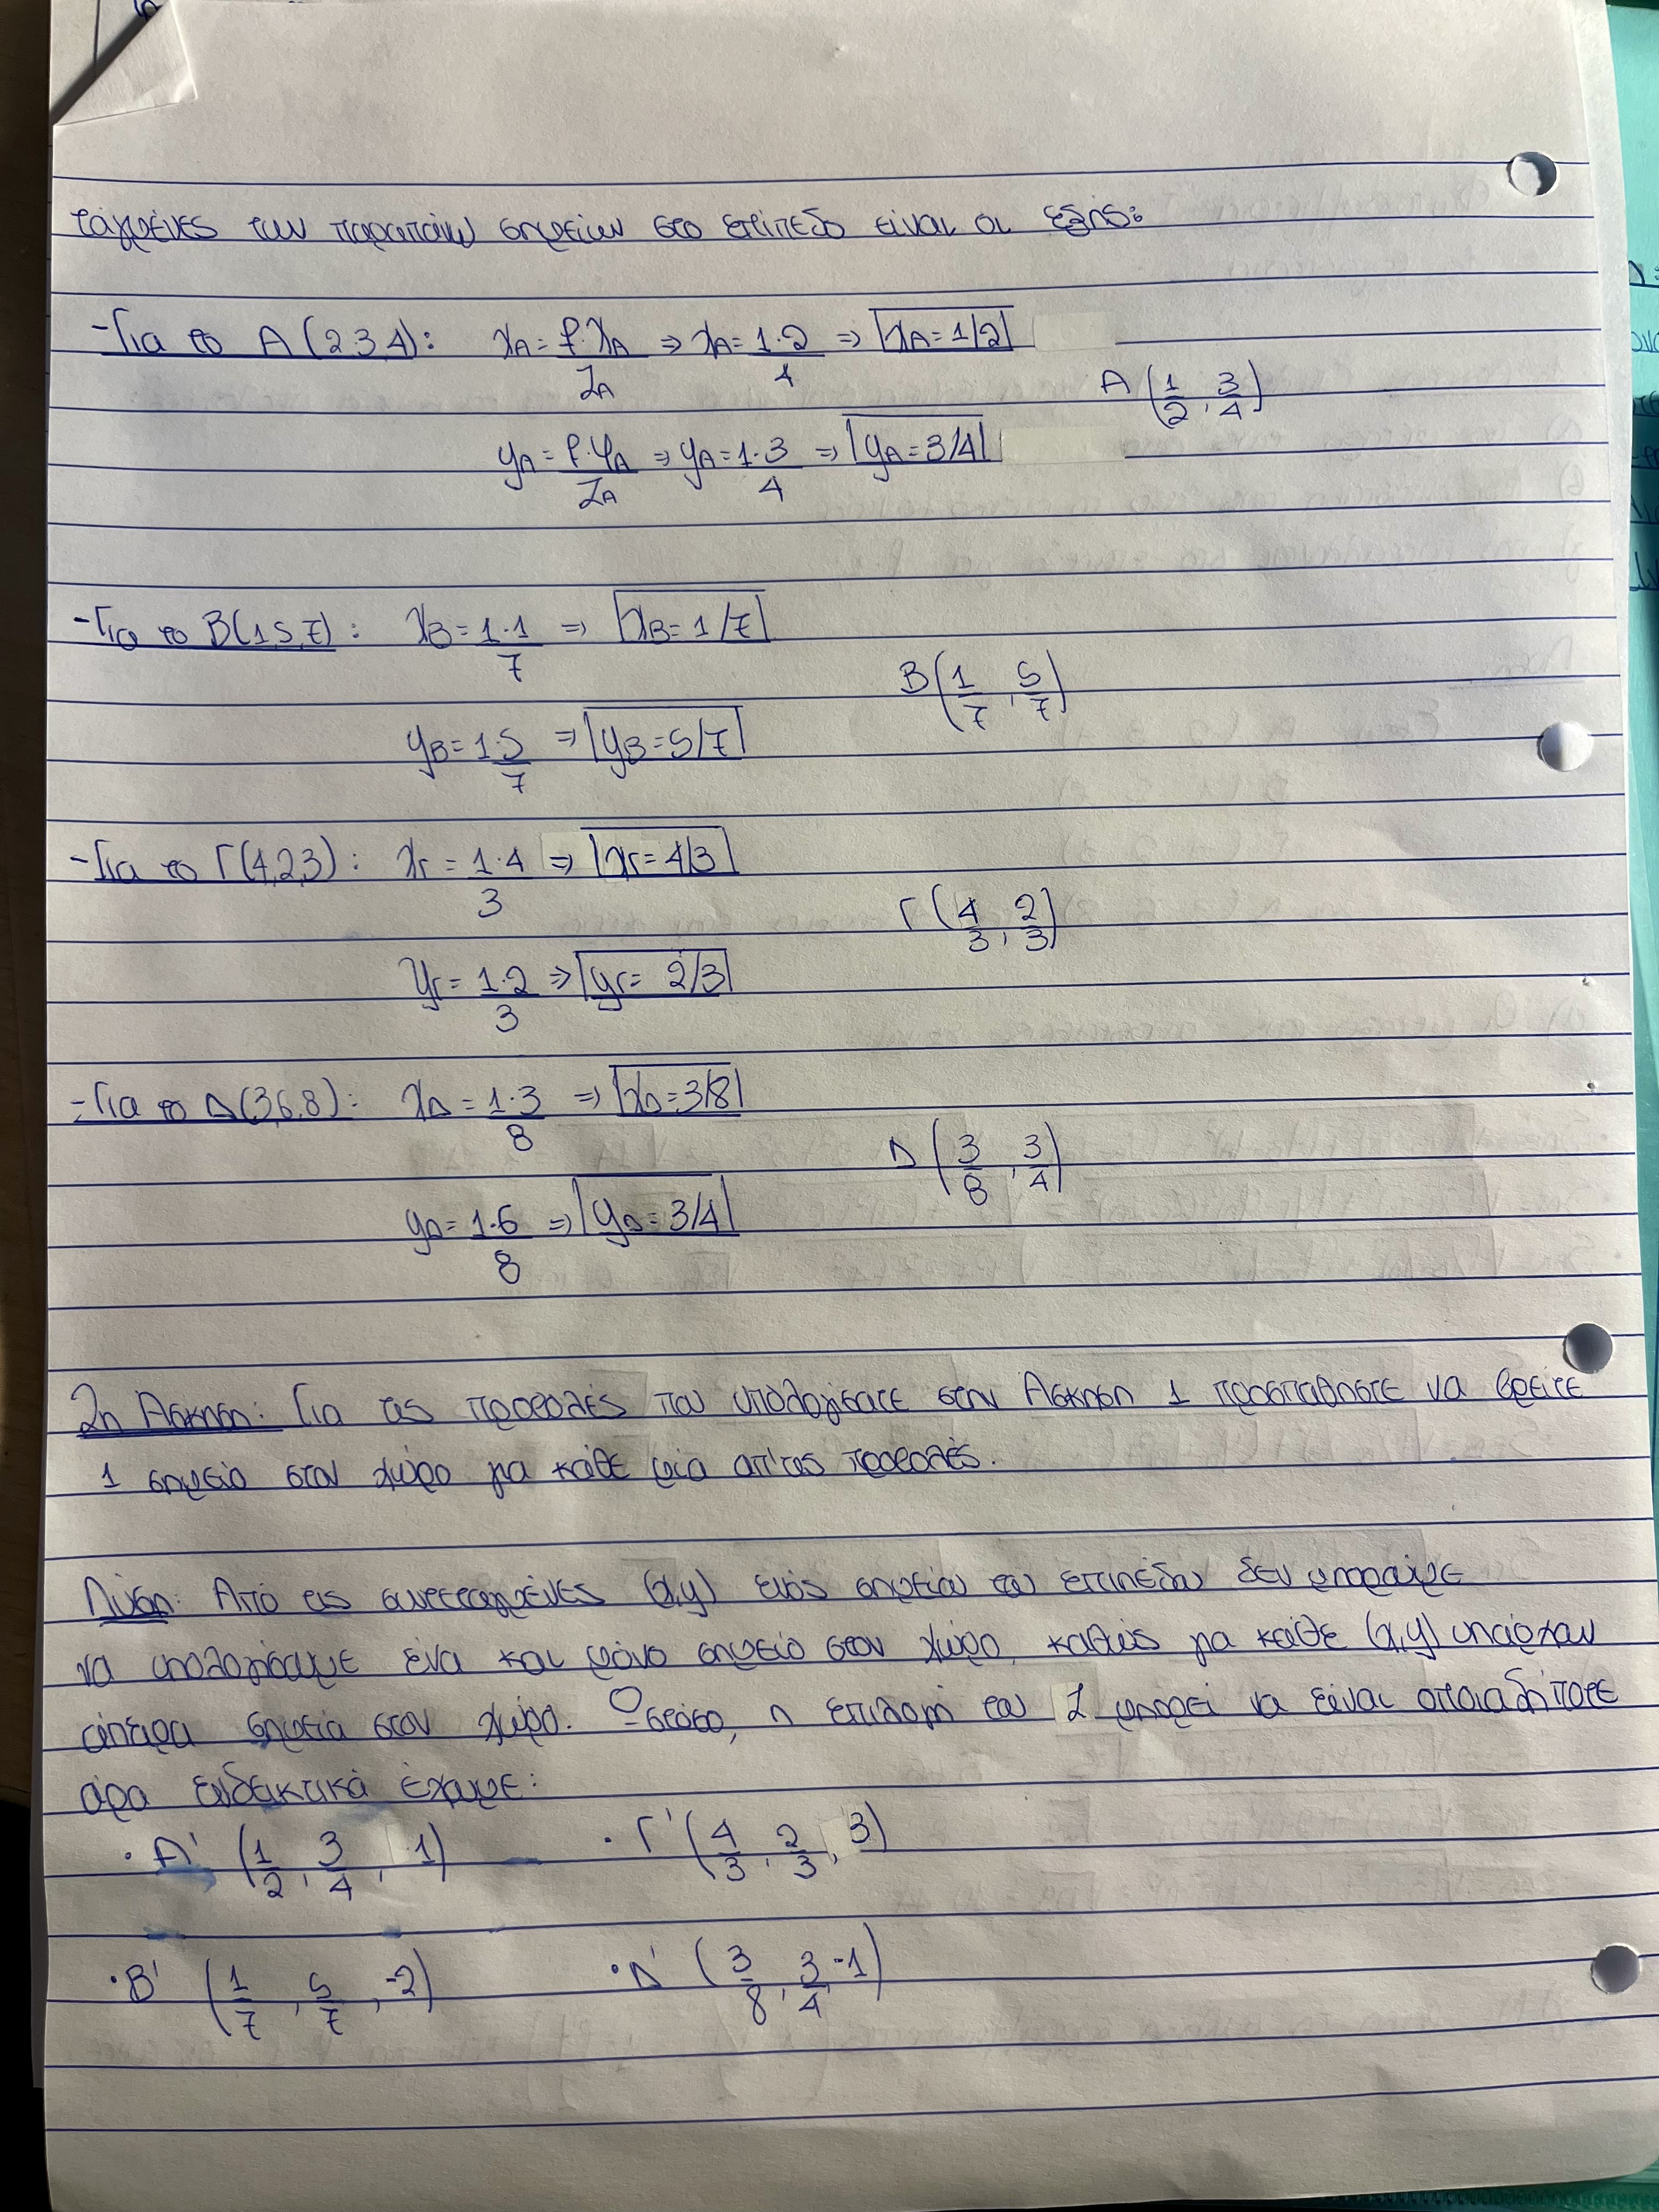 ταγμένες των παραπάνω σημείων στο επίπεδο είναι οι εξής:
-Για το A(2,3,4): xA = f·XA/ZA ⇒ xA = 1·2/4 ⇒ xA = 1/2
A(1/2, 3/4)
yA = f·YA/ZA ⇒ yA = 1·3/4 ⇒ yA = 3/4
-Για το B(1,5,7): xB = 1·1/7 ⇒ xB = 1/7
B(1/7, 5/7)
yB = 1·5/7 ⇒ yB = 5/7
-Για το Γ(4,2,3): xΓ = 1·4/3 ⇒ xΓ = 4/3
Γ(4/3, 2/3)
yΓ = 1·2/3 ⇒ yΓ = 2/3
-Για το Δ(3,6,8): xΔ = 1·3/8 ⇒ xΔ = 3/8
Δ(3/8, 3/4)
yΔ = 1·6/8 ⇒ yΔ = 3/4
2η Άσκηση: Για τις προβολές που υπολογίσατε στην Άσκηση 1 προσπαθήστε να βρείτε
1 σημείο στον χώρο για κάθε μία απ'τις προβολές.
Λύση: Από τις συντεταγμένες (x,y) ενός σημείου του επιπέδου δεν μπορούμε
να υπολογίσουμε ένα και μόνο σημείο στον χώρο, καθώς για κάθε (x,y) υπάρχουν
άπειρα σημεία στον χώρο. Ωστόσο, η επιλογή του Z μπορεί να είναι οποιαδήποτε
άρα ενδεικτικά έχουμε:
· A' (1/2, 3/4, 1) · Γ' (4/3, 2/3, 3)
· B' (1/7, 5/7, -2) · Δ' (3/8, 3/4, -1)